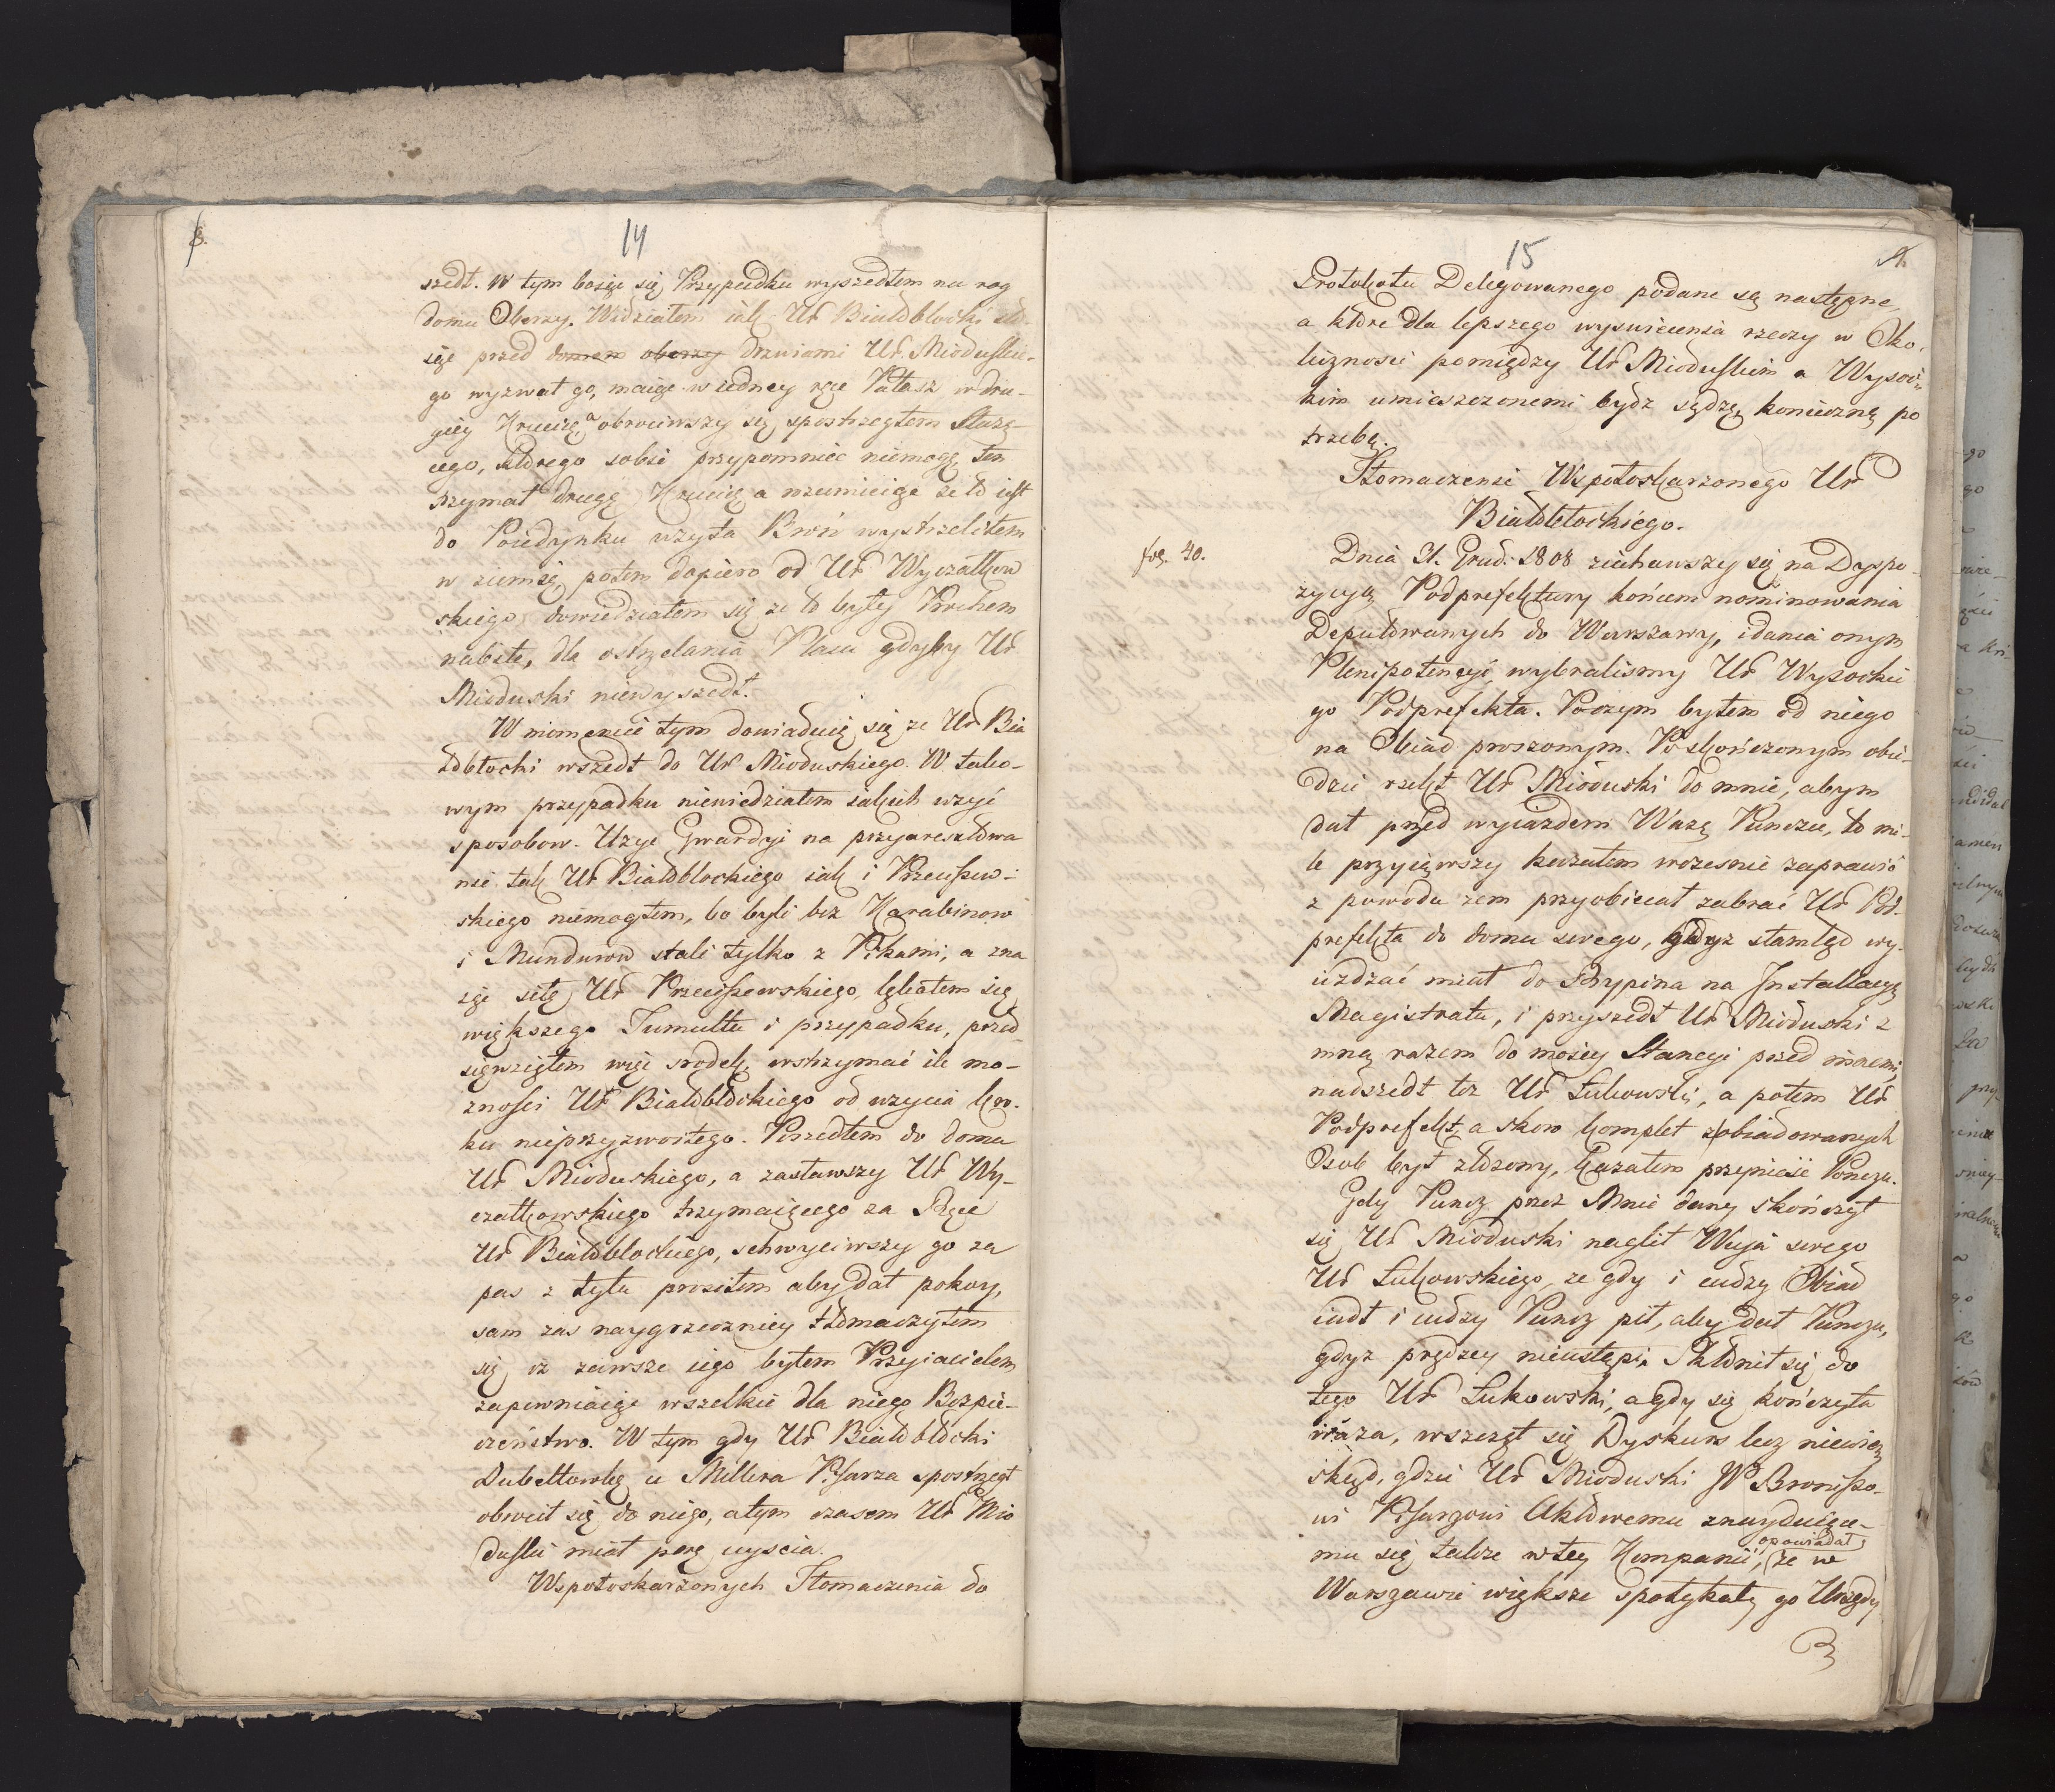 8.
14
szedł. W tym boiąc się Przypadku wyszedłem na rog
domu Oberzy. Widziałem iak Ur Białobłocki sto-
iąc przed domem oberzy drzwiami Ur. Mioduskie-
go wyzwał go, maiąc w iedney ręce Pałasz w dru-
giey Krucicę a obrociwszy się spostrzegłem Służą-
cego, ktorego sobie przypomniec niemogę, ten
trzymał drugę Krucicę a rozumieiąc że to iest
do Poiedynku użyta Broń wystrzeliłem
w ziemię, potem dopiero od Ur Wyczałkow
skiego dowiedziałem się ze to były Prochem
nabite, dla ostrzelania Placu gdyby Ur
Mioduski niewyszedł.
W momencie tym dowiaduię się ze Ur Bia
łobłocki wszedł do Ur Mioduskiego. W tako-
wym przypadku niewiedziałem iakich użyć
sposobow. Użyć Gwardyi na przyaresztowa
nie tak Ur Białobłockiego iak i Przeciszew-
skiego niemogłem, bo byli bez Karabinow
i Mundurow stali tylko z Pikami, a zna
iąc siłę Ur Przeciszewskiego, lękałem się
większego Tumultu i przypadku, przed
sięwziąłem więc srodek, wstrzymać ile mo-
zności Ur Białobłockiego od uzycia kro-
ku nieprzyzwoitego. Poszedłem do domu
Ur Mioduskiego, a zastawszy Ur Wy-
czałkowskiego trzymaiącego za Ręce
Ur Białobłockiego, schwyciwszy go za
pas z tyłu prosiłem aby dał pokoy,
sam zas naygrzeczniey tłomaczyłem
się iz zawsze iego byłem Przyiacielem
zapewniaiąc wszelkie dla niego Bezpie-
czeństwo. W tym gdy Ur Białobłocki
Dubeltowkę u Millera Pisarza spostrzegł
obrocił się do niego, a tym czasem Ur Mio
duski miał porę uyscia.
Wspołoskarżonych Tłomaczenia do
15
9.
Protokołu Delegowanego podane są następne
a ktore dla lepszego wyswiecenia rzeczy w Oko-
licznosci pomiędzy Ur Mioduskim a Wysoc-
kim umieszczonemi bydz sądzę konieczną po
trzebą.
Tłomaczenie Wspołoskarzonego Ur
Białobłockiego.
fog. 40.
Dnia 31. Grud. 1808 ziechawszy się na Dyspo-
zycyą Podprefektury końcem nominowania
Deputowanych do Warszawy, i dania onym
Plenipotencyi, wybralismy Ur Wysockie
go Podprefekta. Poczym byłem od niego
na Obiad proszonym. Po skończonym obie-
dzie rzekł Ur Mioduski do mnie, abym
dał przed wyiazdem Wazę Punczu, to mi-
le przyiąwszy kazałem wczesnie zaprawić
z powodu zem przyobiecał zabrać Ur Pod-
prefekta do domu swego, gdyz stamtąd wy-
iezdzać miał do Rypina na Installacyą
Magistratu, i przyszedł Ur Mioduski z
mną razem do moiey Stancyi przed innemi,
nadszedł toz Ur Łukowski, a potem Ur
Podprefekt, a skoro komplet zobiadowanych
Osob był złozony, kazałem przynieść Ponczu.
Gdy Puncz przez Mnie dany skończył
się Ur Mioduski naglił Wuja swego
Ur Łukowskiego, ze gdy i cudzy Obiad
iadł i cudzy Puncz pił, aby dał Punczu,
gdyz prędzey nieustąpi. Skłonił się do
tego Ur Łukowski, a gdy się kończyła
waza, wszczął się Dyskurs lecz niewiem
skąd, gdzie Ur Mioduski JP Broniszo-
wi Pisarzowi Aktowemu znayduiące-
mu się także w tey Kompanii, opowiadał, że w
Warszawie większe spotykały go Urzędy
B